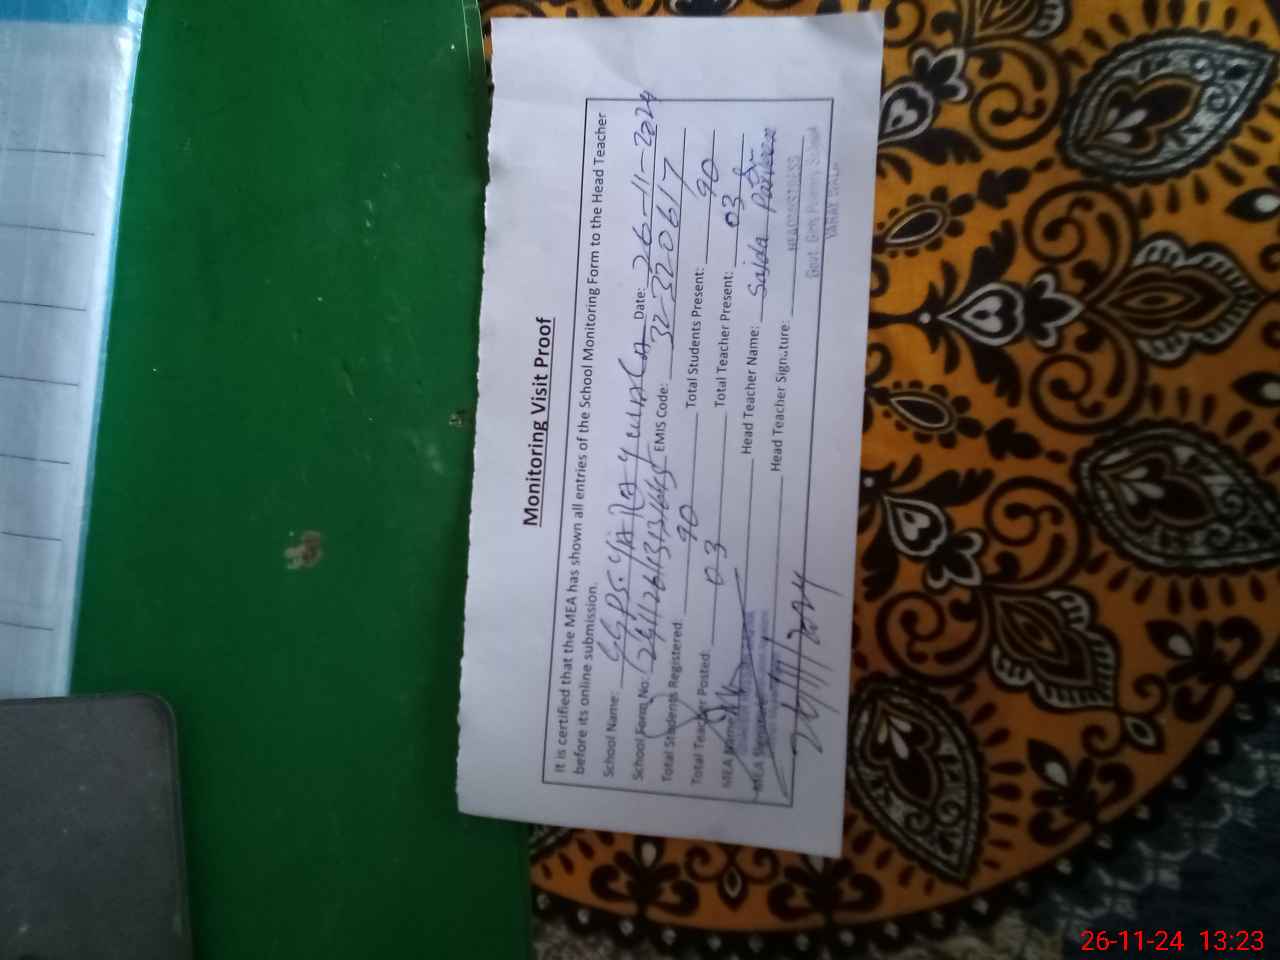 Monitoring Visit Proof
It is certified that the MEA has shown all entries of the School Monitoring Form to the Head Teacher
before its online submission.
School Name: GGPS. Date: 26-11-2024
School Form No: EMIS Code: 32320617
Total Students Registered: 90 Total Students Present: 90
Total Teacher Posted: 03 Total Teacher Present: 03
MEA Name Head Teacher Name: Sajda Parveen
MEA Signature Head Teacher Signature:
HEADMISTRESS
Govt. Girls Primary School
26/11/2024
26-11-24 13:23